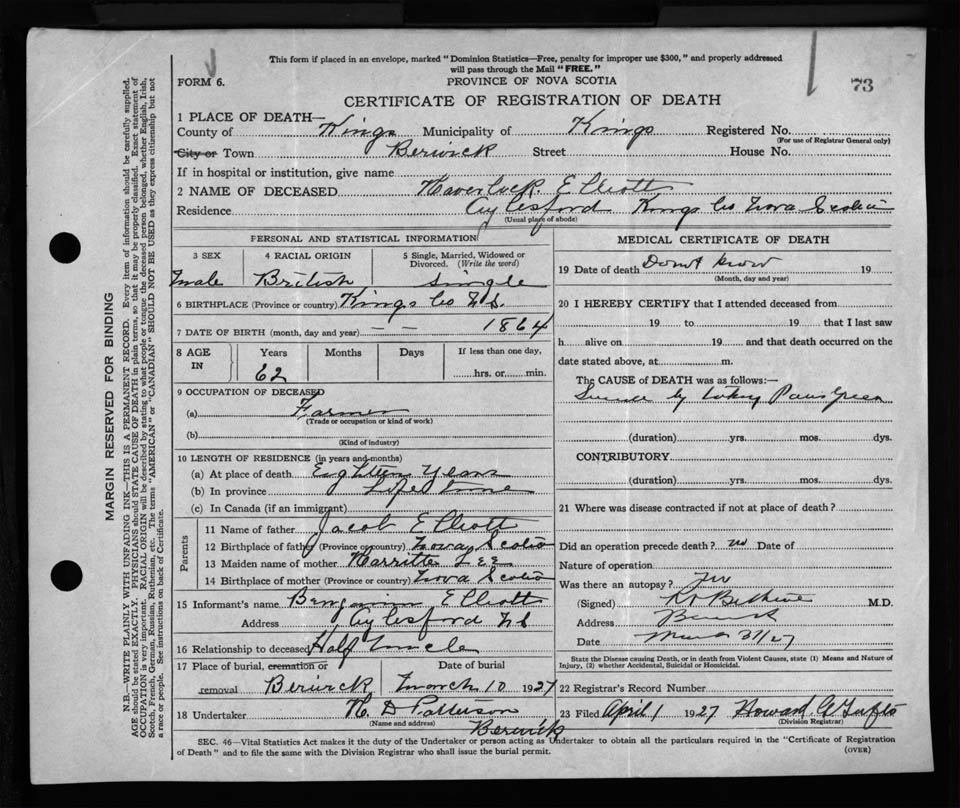 This form if placed in an envelope, marked "Dominion Statistics—Free, penalty for improper use $300," and properly addressed
will pass through the Mail "FREE."
FORM 6.
PROVINCE OF NOVA SCOTIA
73
CERTIFICATE OF REGISTRATION OF DEATH
1 PLACE OF DEATH—
County of Kings Municipality of Kings Registered No.
(For use of Registrar General only)
City or Town Berwick Street House No.
If in hospital or institution, give name
2 NAME OF DECEASED Haverlock Elliott
Residence Aylesford Kings Co Nova Scotia
(Usual place of abode)
PERSONAL AND STATISTICAL INFORMATION
3 SEX 4 RACIAL ORIGIN 5 Single, Married, Widowed or Divorced. (Write the word)
male British Single
6 BIRTHPLACE (Province or country) Kings Co N.S.
7 DATE OF BIRTH (month, day and year) — — 1864
8 AGE IN Years Months Days If less than one day,
62 hrs. or min.
9 OCCUPATION OF DECEASED
(a) Farmer
(Trade or occupation or kind of work)
(b)
(Kind of industry)
10 LENGTH OF RESIDENCE (in years and months)
(a) At place of death Eighteen Years
(b) In province Life time
(c) In Canada (if an immigrant)
Parents
11 Name of father Jacob Elliott
12 Birthplace of father (Province or country) Nova Scotia
13 Maiden name of mother Harritte
14 Birthplace of mother (Province or country) Nova Scotia
15 Informant's name Benjamin Elliott
Address Aylesford NS
16 Relationship to deceased Half Uncle
17 Place of burial, cremation or removal Date of burial
Berwick March 10 1927
18 Undertaker H D Patterson
(Name and address)
Berwick
MEDICAL CERTIFICATE OF DEATH
19 Date of death Don't know 19
(Month, day and year)
20 I HEREBY CERTIFY that I attended deceased from
19 to 19 that I last saw
h alive on 19 and that death occurred on the
date stated above, at m.
The CAUSE OF DEATH was as follows:—
Suicide by taking Paris Green
(duration) yrs. mos. dys.
CONTRIBUTORY
(duration) yrs. mos. dys.
21 Where was disease contracted if not at place of death?
Did an operation precede death? no Date of
Nature of operation
Was there an autopsy?
(Signed) Bethune M.D.
Address Berwick
Date 31/27
State the Disease causing Death, or in death from Violent Causes, state (1) Means and Nature of
Injury, (2) whether Accidental, Suicidal or Homicidal.
22 Registrar's Record Number
23 Filed April 1 1927 Howard
(Division Registrar)
SEC. 46—Vital Statistics Act makes it the duty of the Undertaker or person acting as Undertaker to obtain all the particulars required in the "Certificate of Registration
of Death" and to file the same with the Division Registrar who shall issue the burial permit.
(OVER)
MARGIN RESERVED FOR BINDING
N.B.—WRITE PLAINLY WITH UNFADING INK—THIS IS A PERMANENT RECORD. Every item of information should be carefully supplied.
AGE should be stated EXACTLY. PHYSICIANS should STATE CAUSE OF DEATH in plain terms, so that it may be properly classified. Exact statement of
OCCUPATION is very important. RACIAL ORIGIN will be described by stating to what people or tongue the deceased person belonged, whether English, Irish,
Scotch, French, German, Russian, Ruthenian, etc. The terms "AMERICAN" or "CANADIAN" SHOULD NOT BE USED as they express citizenship but not
a race or people. See instructions on back of Certificate.